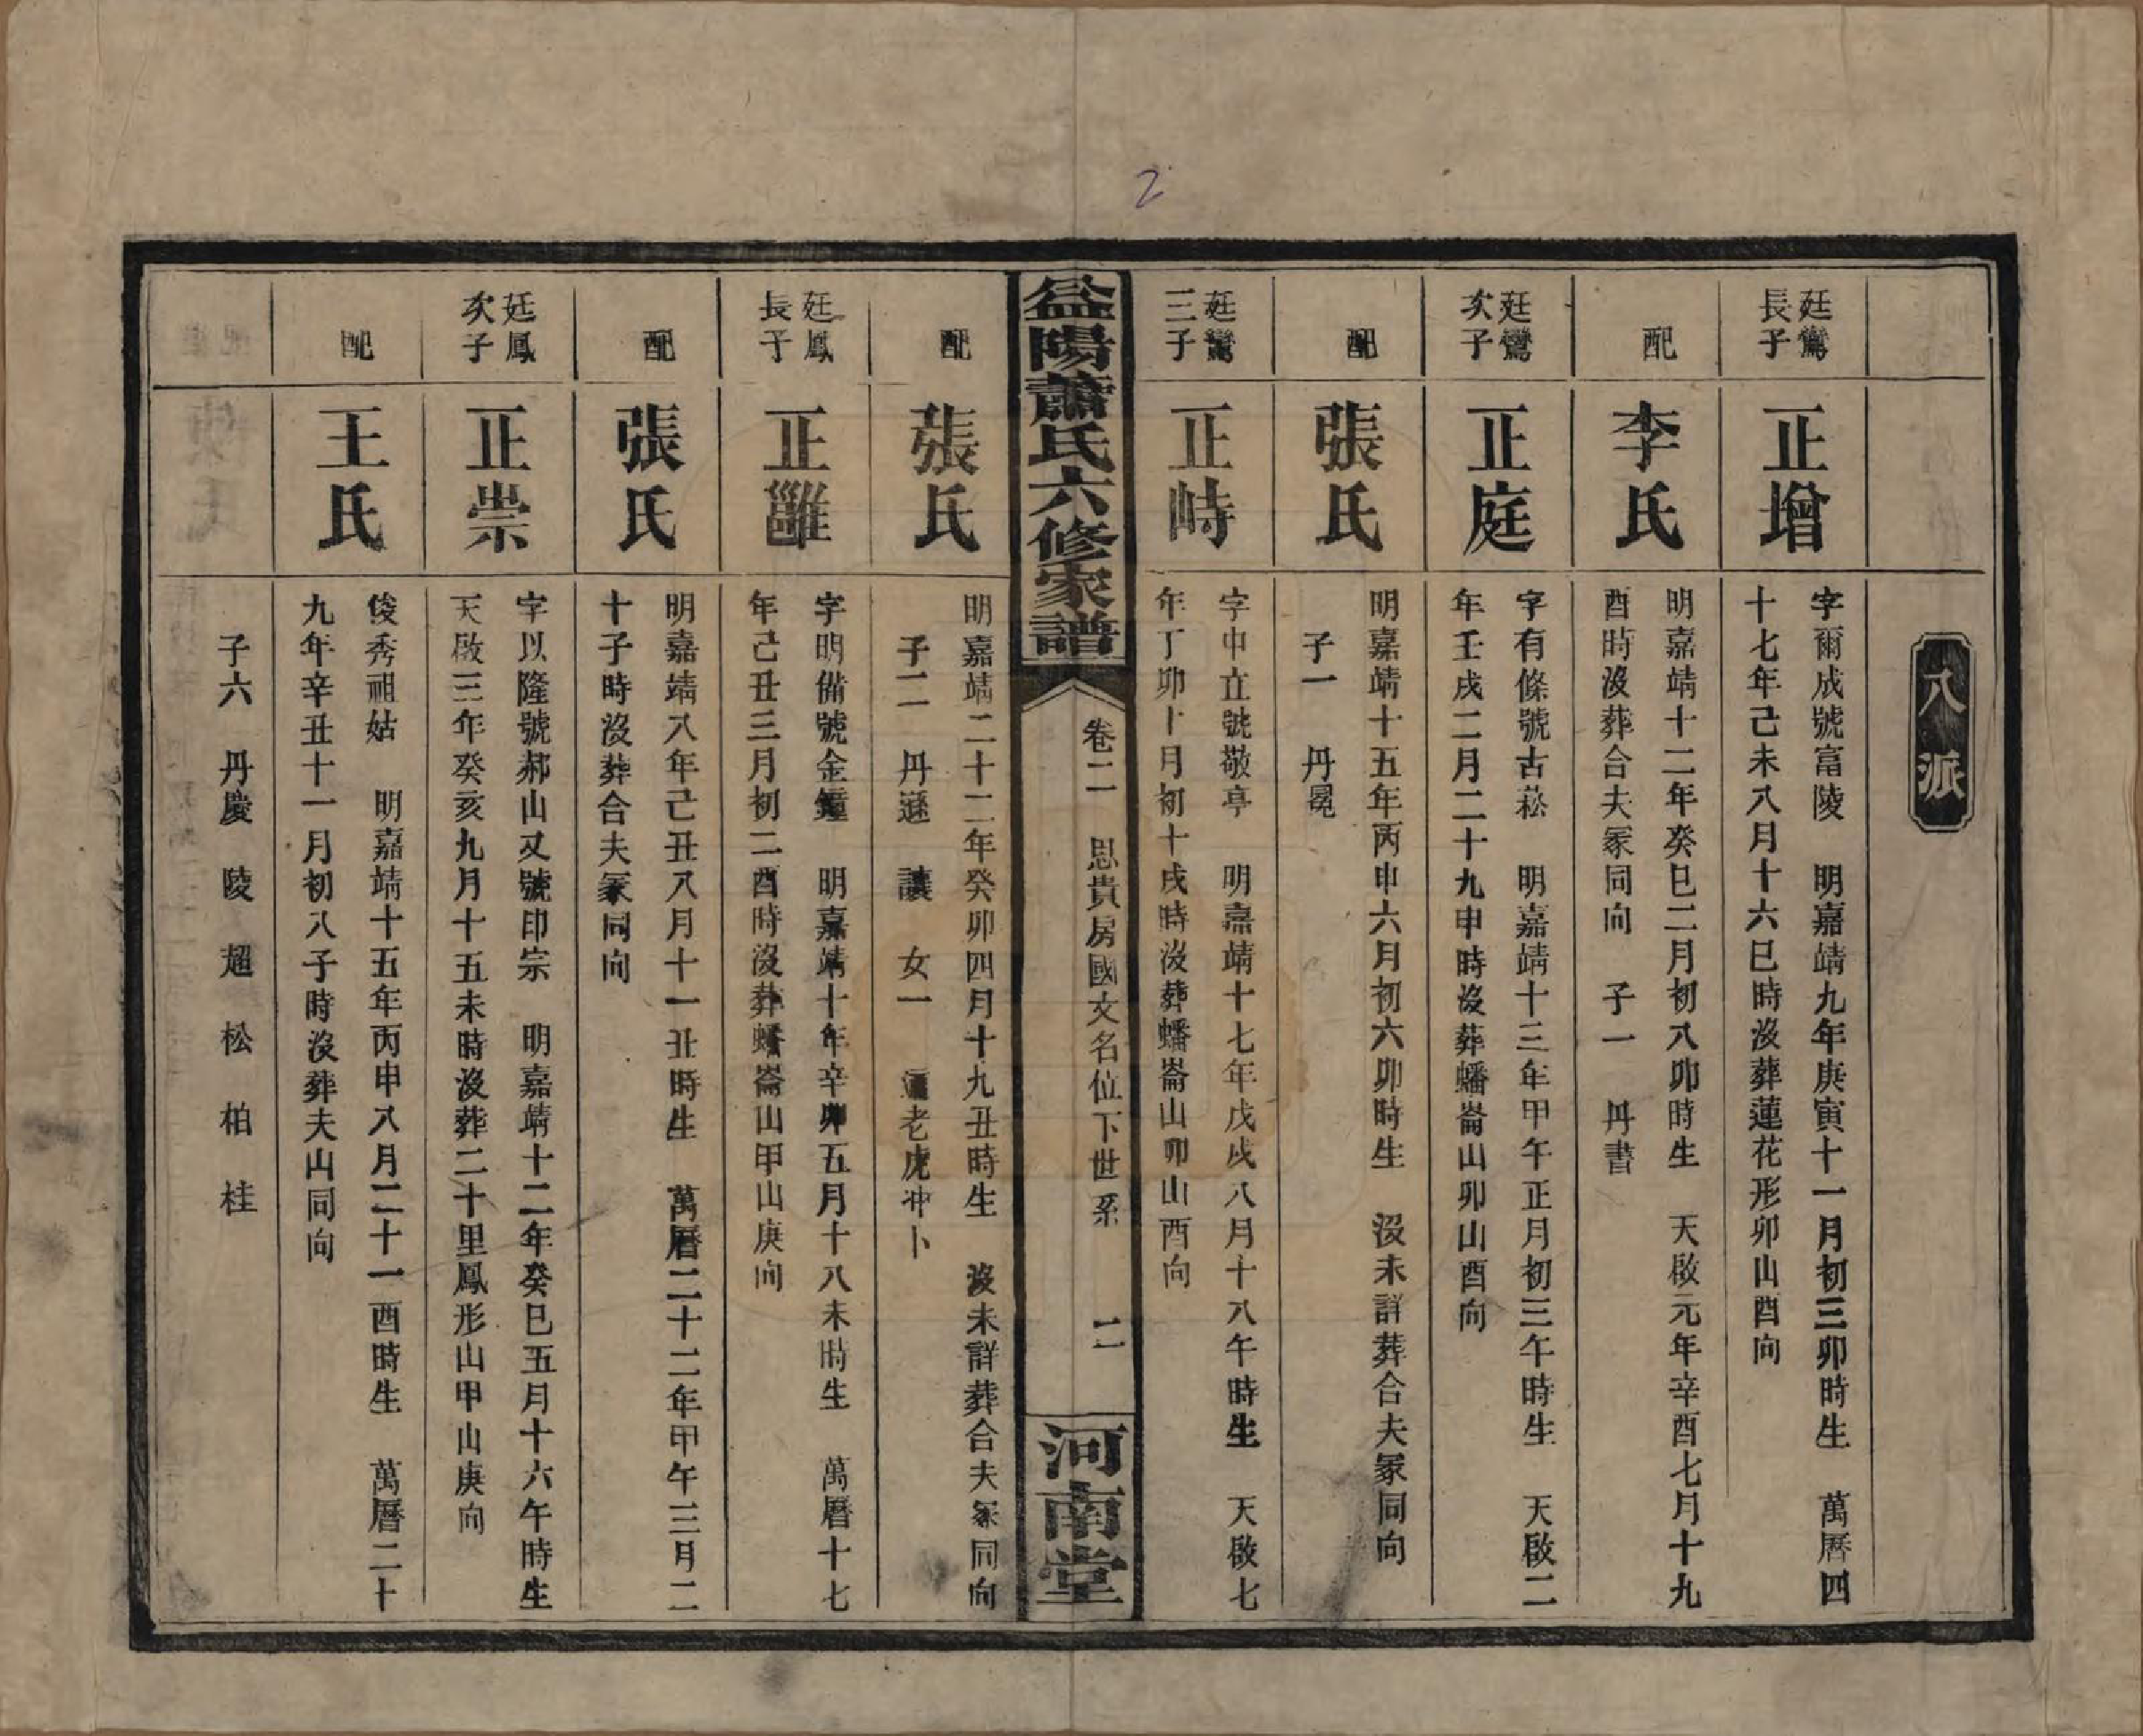 2
八派
廷鸞
長子
正增
字爾成號富陵　明嘉靖九年庚寅十一月初三卯時生　萬曆四
十七年己未八月十六巳時沒葬蓮花形卯山酉向
配
李氏
明嘉靖十二年癸巳二月初八卯時生　天啟元年辛酉七月十九
酉時沒葬合夫冢同向　子一　丹書
廷鸞
次子
正庭
字有條號古菘　明嘉靖十三年甲午正月初三午時生　天啟二
年壬戌二月二十九申時沒葬蟠崙山卯山酉向
配
張氏
明嘉靖十五年丙申六月初六卯時生　沒未詳葬合夫冢同向
子一　丹冕
廷鸞
三子
正峙
字中立號敬亭　明嘉靖十七年戊戌八月十八午時生　天啟七
年丁卯十月初十戌時沒葬蟠崙山卯山酉向
益陽蕭氏六修家譜
卷二　思貴房國文名位下世系　二
河南堂
配
張氏
明嘉靖二十二年癸卯四月十九丑時生　沒未詳葬合夫冢同向
子二　丹遜　讓　女一　適老虎冲卜
廷鳳
長子
正雝
字明備號金鐘　明嘉靖十年辛卯五月十八未時生　萬曆十七
年己丑三月初二酉時沒葬蟠崙山甲山庚向
配
張氏
明嘉靖八年己丑八月十一丑時生　萬曆二十二年甲午三月二
十子時沒葬合夫冢同向
廷鳳
次子
正崇
字以隆號郝山又號印宗　明嘉靖十二年癸巳五月十六午時生
天啟三年癸亥九月十五未時沒葬二十里鳳形山甲山庚向
配
王氏
俊秀祖姑　明嘉靖十五年丙申八月二十一酉時生　萬曆二十
九年辛丑十一月初八子時沒葬夫山同向
子六　丹慶　陵　超　松　柏　桂